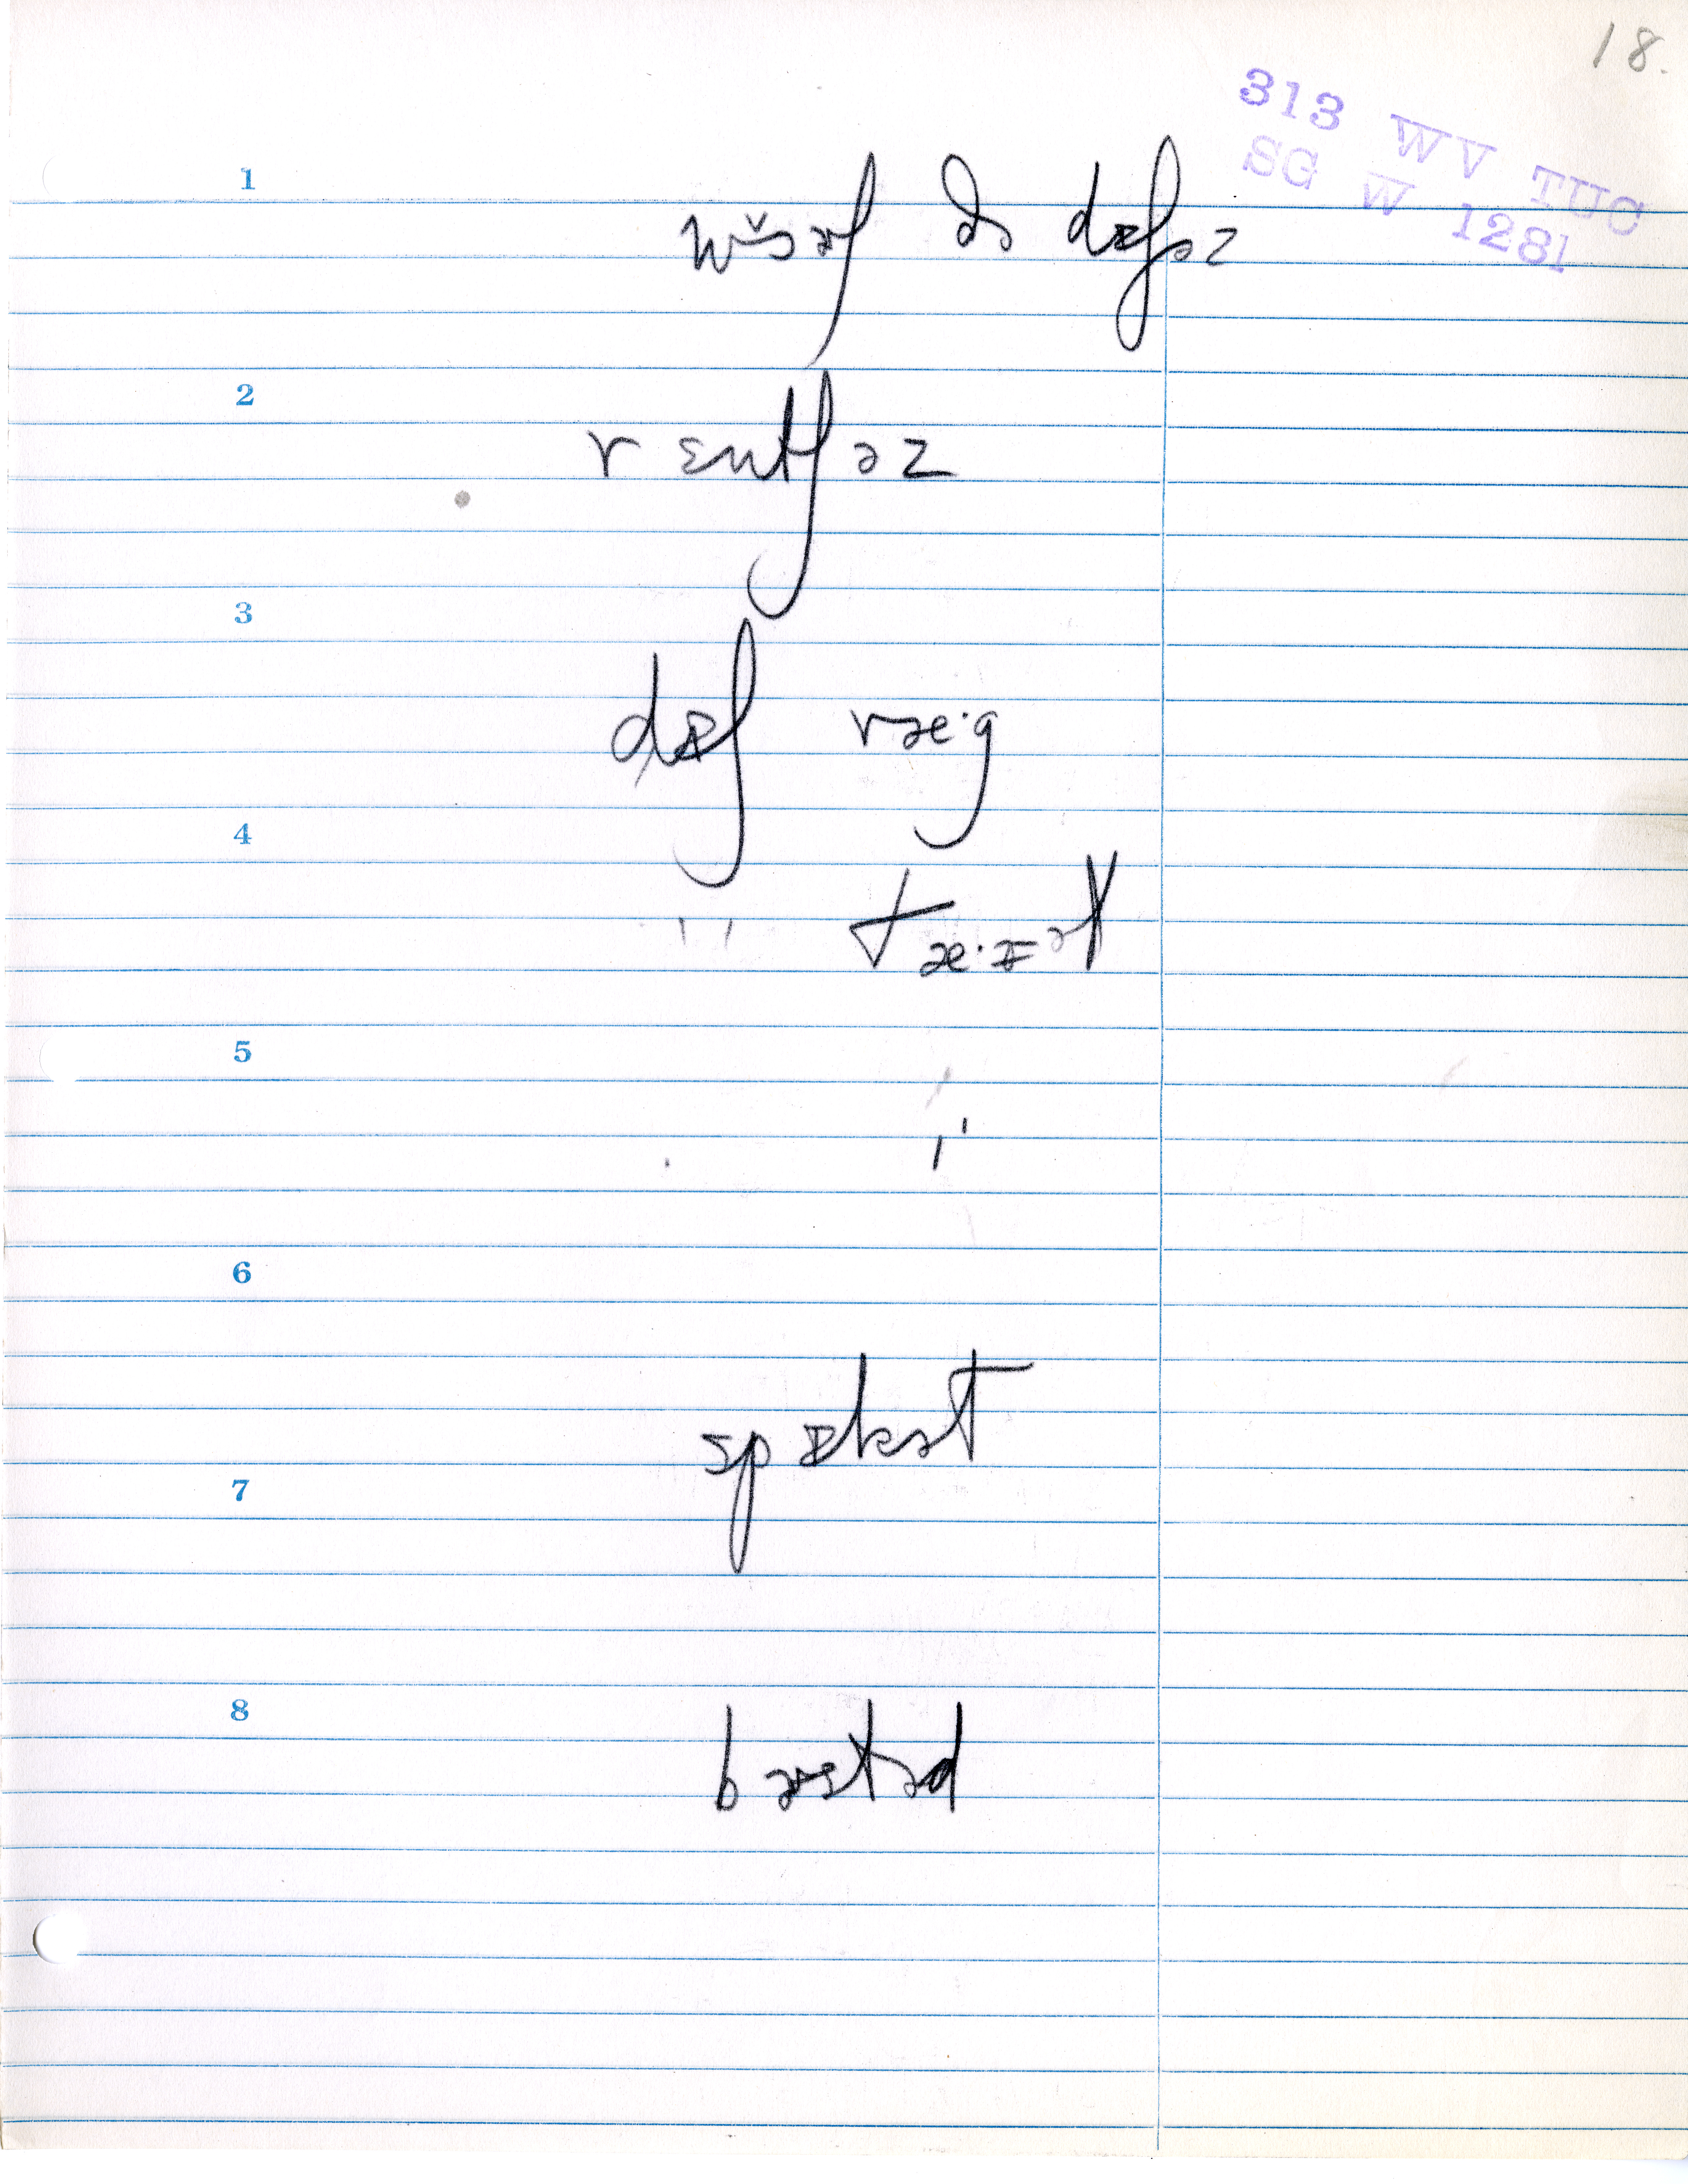 18.
313 WV TUC
SG W 1281
1
wɔ̆ɚʃ ðə dɪʃəz
2
r ɛntʃəz
3
dɪʃ ræ·g
4
" tæ·ɪət
5
"
6
spɪkət
7
8
bæstəd